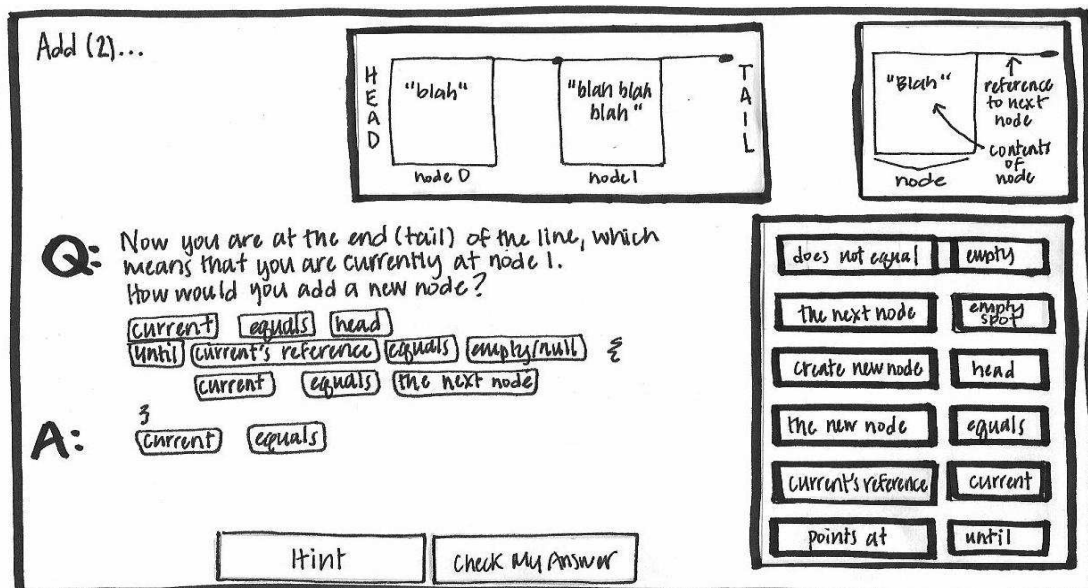 Add (2)...
HEAD
"blah"
"blah blah
blah"
TAIL
node 0
node 1
"Blah"
reference
to next
node
contents
of
node
node
Q: Now you are at the end (tail) of the line, which
means that you are currently at node 1.
How would you add a new node?
current equals head
until current's reference equals empty/null {
current equals the next node
}
A: current equals
does not equal empty
the next node empty spot
create new node head
the new node equals
current's reference current
points at until
Hint Check My Answer